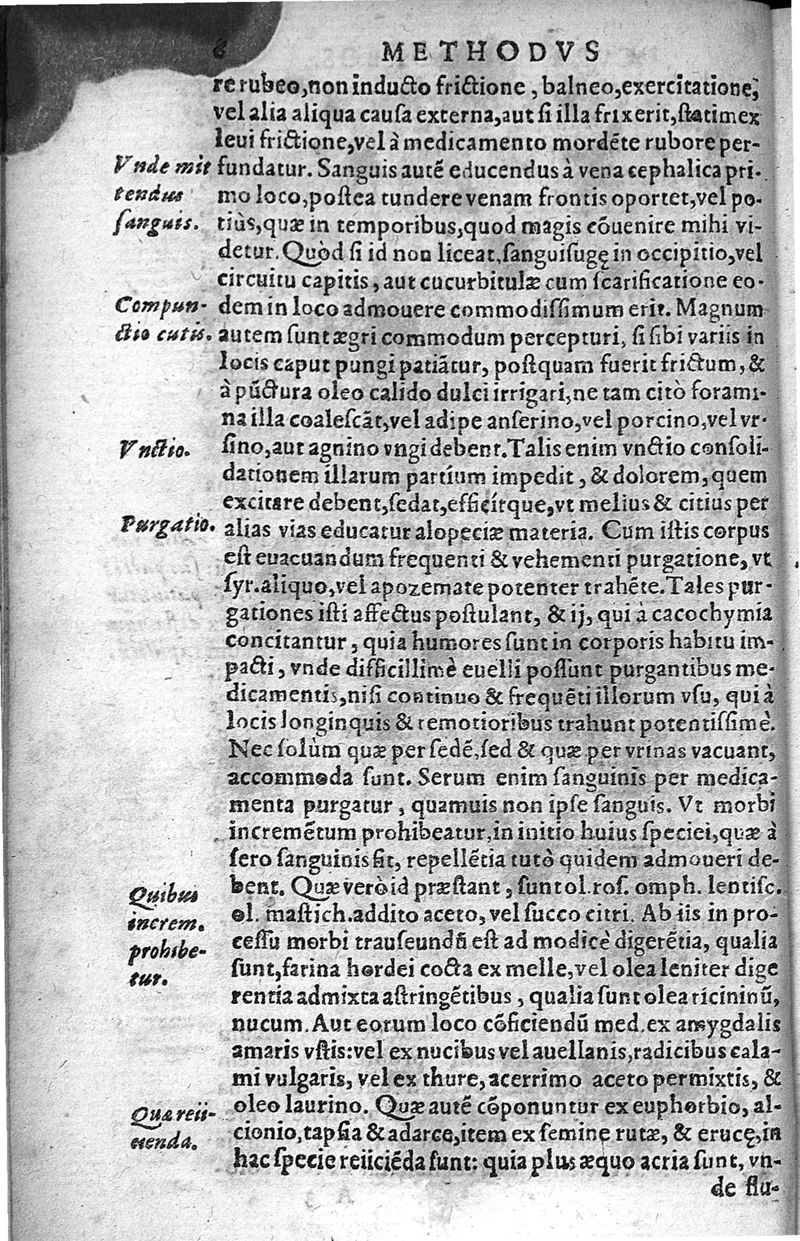 METHODVS
re rubeo, non inducto frictione, balneo, exercitatione,
vel alia aliqua cauſa externa, aut ſi illa frixerit, ſtatim ex
leui frictione, vel à medicamento mordẽte rubore per-
Vnde mit
tendus
ſanguis.
fundatur. Sanguis autẽ educendus à vena cephalica pri-
mo loco, poſtea tundere venam frontis oportet, vel po-
tiùs, quæ in temporibus, quod magis cõuenire mihi vi-
detur. Quòd ſi id non liceat, ſanguiſugę in occipitio, vel
circuitu capitis, aut cucurbitulæ cum ſcarificatione eo-
Compun-
ctio cutis.
dem in loco admouere commodiſſimum erit. Magnum
autem ſunt ægri commodum percepturi, ſi ſibi variis in
locis caput pungi patiãtur, poſtquam fuerit frictum, &
à pũctura oleo calido dulci irrigari, ne tam citò forami-
na illa coaleſcãt, vel adipe anſerino, vel porcino, vel vr-
Vnctio.
ſino, aut agnino vngi debent. Talis enim vnctio conſoli-
dationem illarum partium impedit, & dolorem, quem
excitare debent, ſedat, efficítque, vt melius & citius per
Purgatio.
alias vias educatur alopeciæ materia. Cum iſtis corpus
eſt euacuandum frequenti & vehementi purgatione, vt
ſyr. aliquo, vel apozemate potenter trahẽte. Tales pur-
gationes iſti affectus poſtulant, & ij, qui à cacochymia
concitantur, quia humores ſunt in corporis habitu im-
pacti, vnde difficillimè euelli poſſunt purgantibus me-
dicamentis, niſi continuo & frequẽti illorum vſu, qui à
locis longinquis & remotioribus trahunt potentiſſimè.
Nec ſolùm quæ per ſedẽ, ſed & quæ per vrinas vacuant,
accommoda ſunt. Serum enim ſanguinis per medica-
menta purgatur, quamuis non ipſe ſanguis. Vt morbi
incremẽtum prohibeatur, in initio huius ſpeciei, quæ à
ſero ſanguinis fit, repellẽtia tutò quidem admoueri de-
Quibus
increm.
prohibe-
tur.
bent. Quæ verò id præſtant, ſunt ol. roſ. omph. lentiſc.
ol. maſtich. addito aceto, vel ſucco citri. Ab iis in pro-
ceſſu morbi tranſeundũ eſt ad modicè digerẽtia, qualia
ſunt, farina hordei cocta ex melle, vel olea leniter dige
rentia admixta aſtringẽtibus, qualia ſunt olea ricininũ,
nucum. Aut eorum loco cõficiendũ med. ex amygdalis
amaris vſtis: vel ex nucibus vel auellanis, radicibus cala-
mi vulgaris, vel ex thure, acerrimo aceto permixtis, &
Quæ reii-
cienda.
oleo laurino. Quæ autẽ cõponuntur ex euphorbio, al-
cionio, tapſia & adarce, item ex ſemine rutæ, & erucę, in
hac ſpecie reiiciẽda ſunt: quia plus æquo acria ſunt, vn-
de flu-